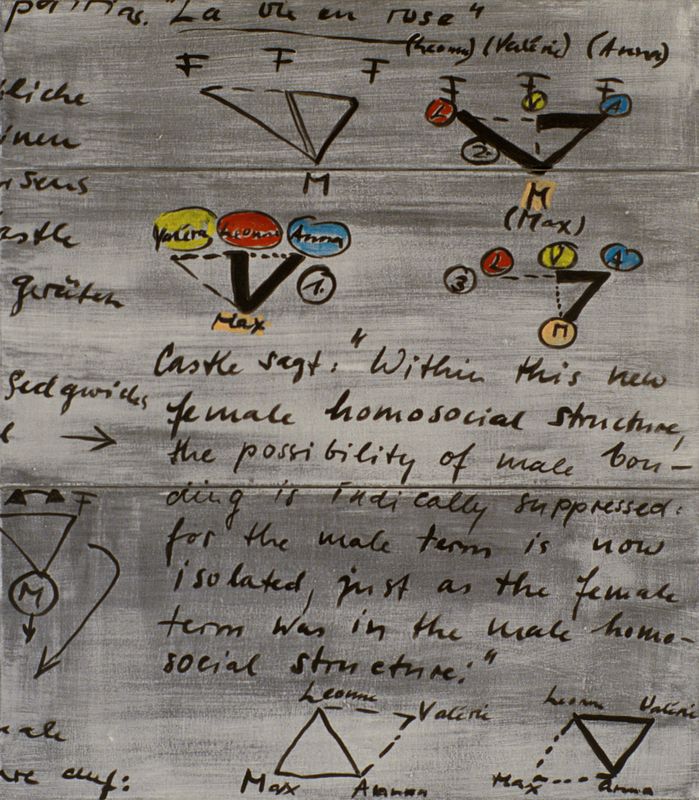 "La vie en rose"
(Leonn) (Valérie) (Anna)
F F F F F F
L V A
2
M
M
(Max)
Valéra Leonne Anna
1.
Max
L V A
3
M
gerüten
Castle sagt: "Within this new
female homosocial structure,
the possibility of male bon-
ding is indically suppressed:
for the male term is now
isolated, just as the female
term was in the male homo-
social structure."
F
M
Leonne Valérie
Max Annna
Leonn Valérie
Max Anna